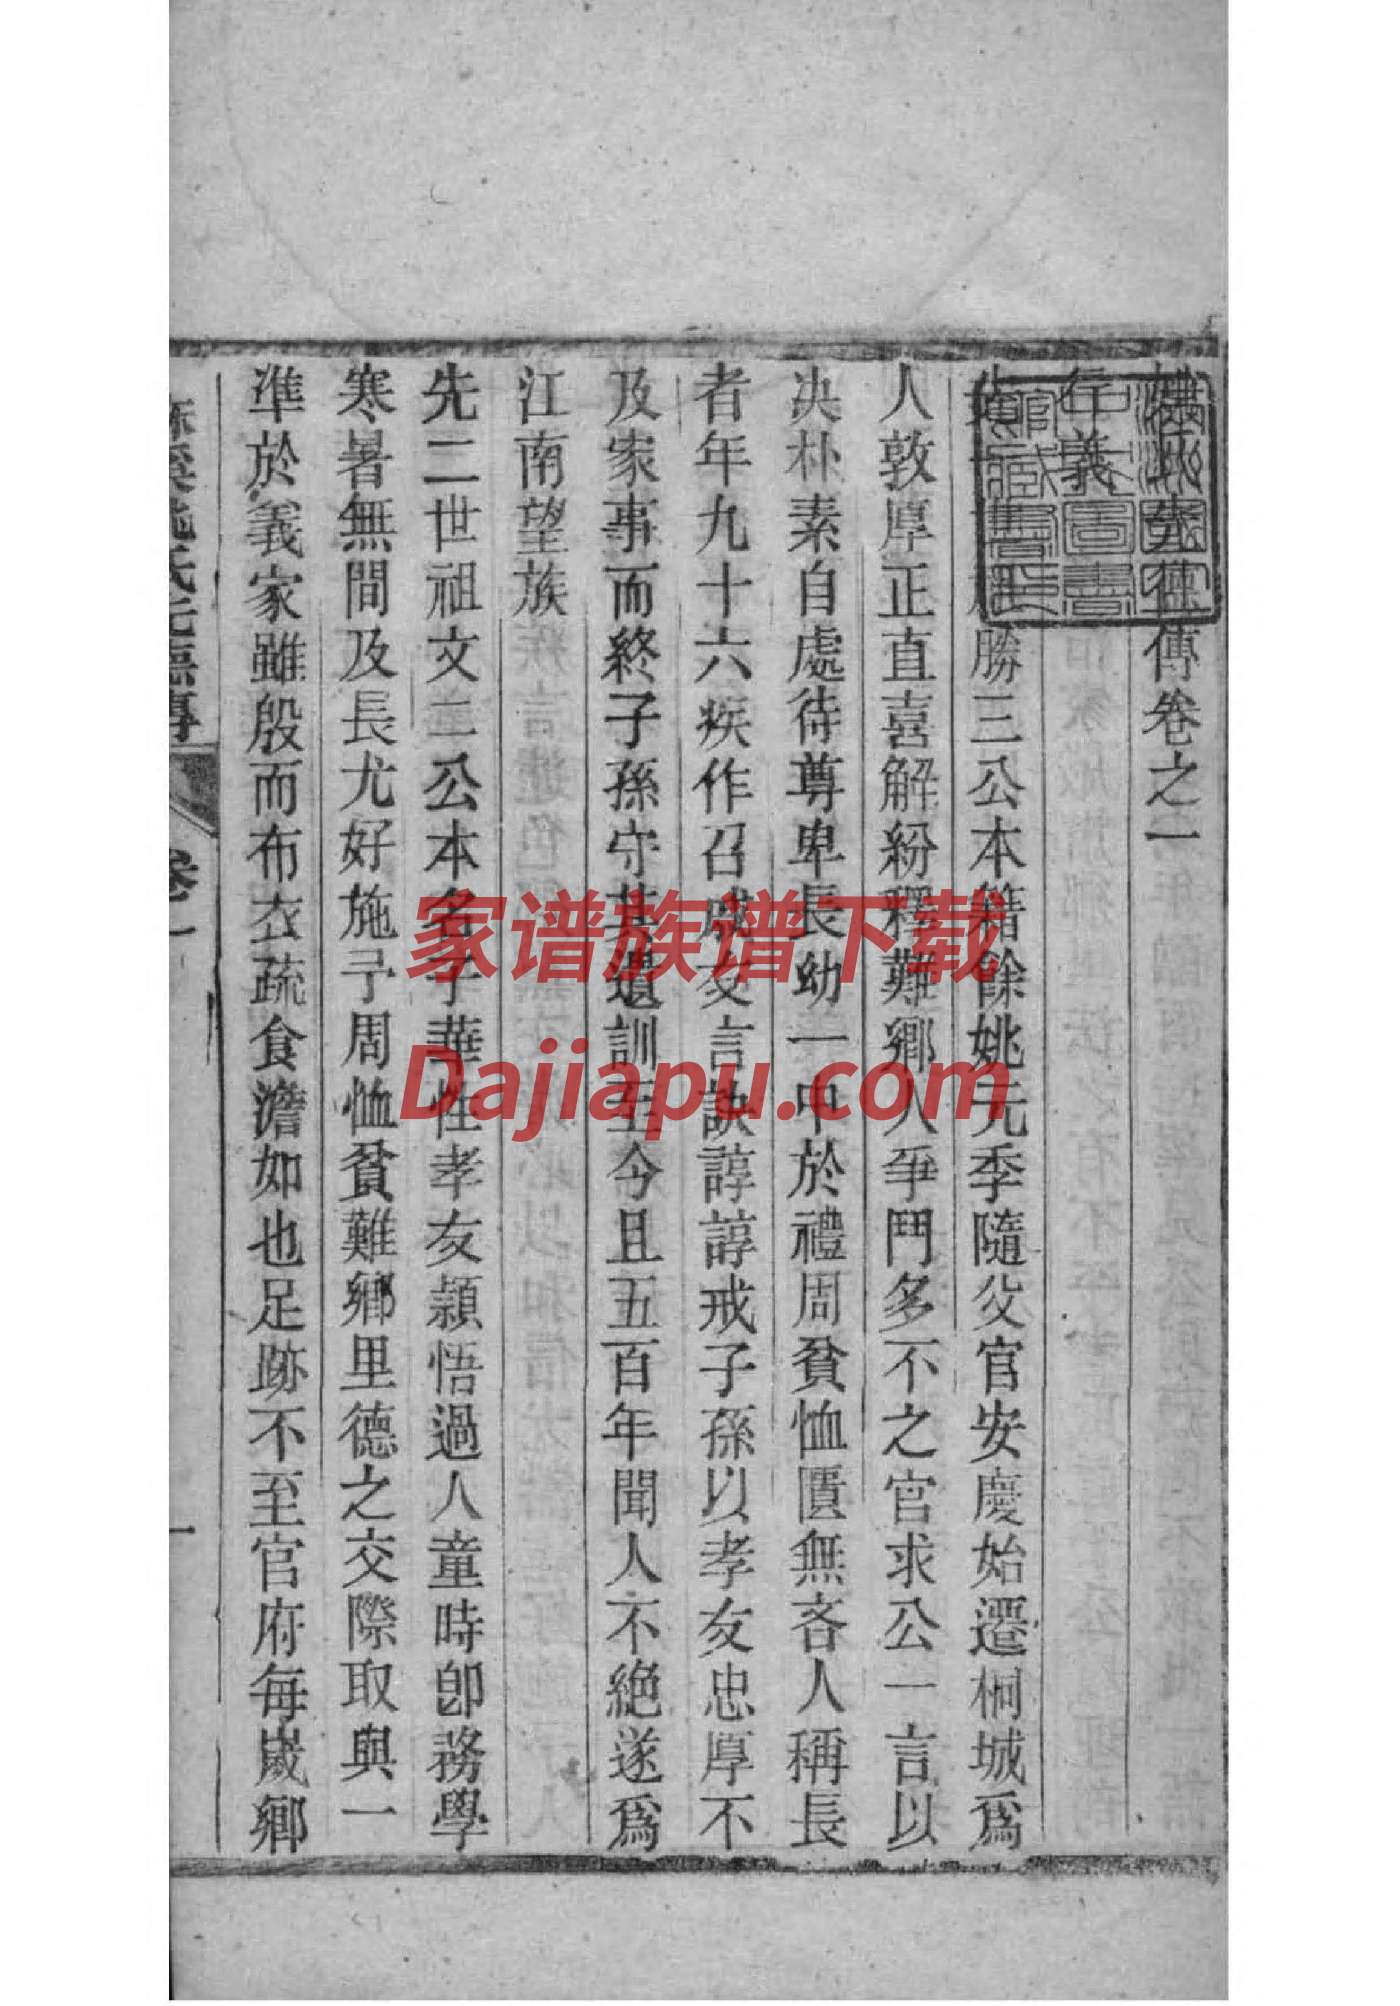 傳卷之一
孝義
勝三公本籍餘姚元季隨父官安慶始遷桐城爲
人敦厚正直喜解紛釋難鄉人爭鬥多不之官求公一言以
决朴素自處待尊卑長幼一中於禮周貧恤匱無吝人稱長
者年九十六疾作召戚友言訣諄諄戒子孫以孝友忠厚不
及家事而終子孫守其遺訓至今且五百年聞人不絕遂爲
江南望族
先二世祖文二公本名子華性孝友頴悟過人童時卽務學
寒暑無間及長尤好施予周恤貧難鄉里德之交際取與一
準於義家雖殷而布衣疏食澹如也足跡不至官府每歲鄉
麻溪姚氏先德傳
卷一
一
家谱族谱下载
Dajiapu.com